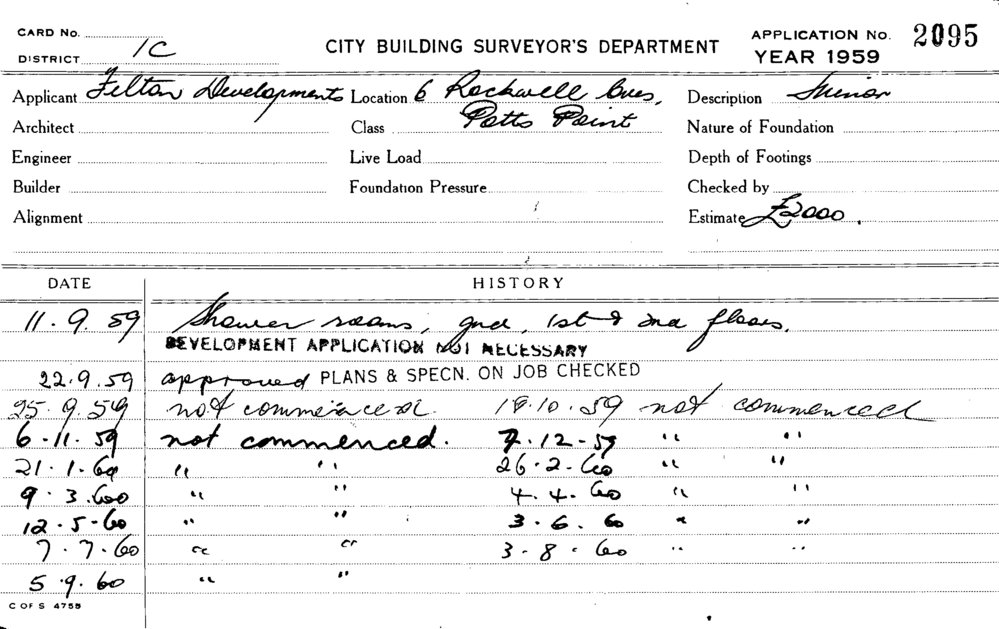 CARD No.
DISTRICT 1C
CITY BUILDING SURVEYOR'S DEPARTMENT
APPLICATION No. 2095
YEAR 1959
Applicant Felton Developments Location 6 Rockwell Cres, Description Minor
Architect Class Potts Point Nature of Foundation
Engineer Live Load Depth of Footings
Builder Foundation Pressure Checked by
Alignment Estimate £2000.
DATE HISTORY
11.9.59 Shower rooms, gnd, 1st & 2nd floors.
DEVELOPMENT APPLICATION NOT NECESSARY
22.9.59 approved PLANS & SPECN. ON JOB CHECKED
25.9.59 not commenced. 19.10.59 not commenced
6.11.59 not commenced. 7.12.59 " "
21.1.60 " " 26.2.60 " "
9.3.60 " " 4.4.60 " "
12.5.60 " " 3.6.60 " "
7.7.60 " " 3.8.60 " "
5.9.60 " "
C OF S 4755